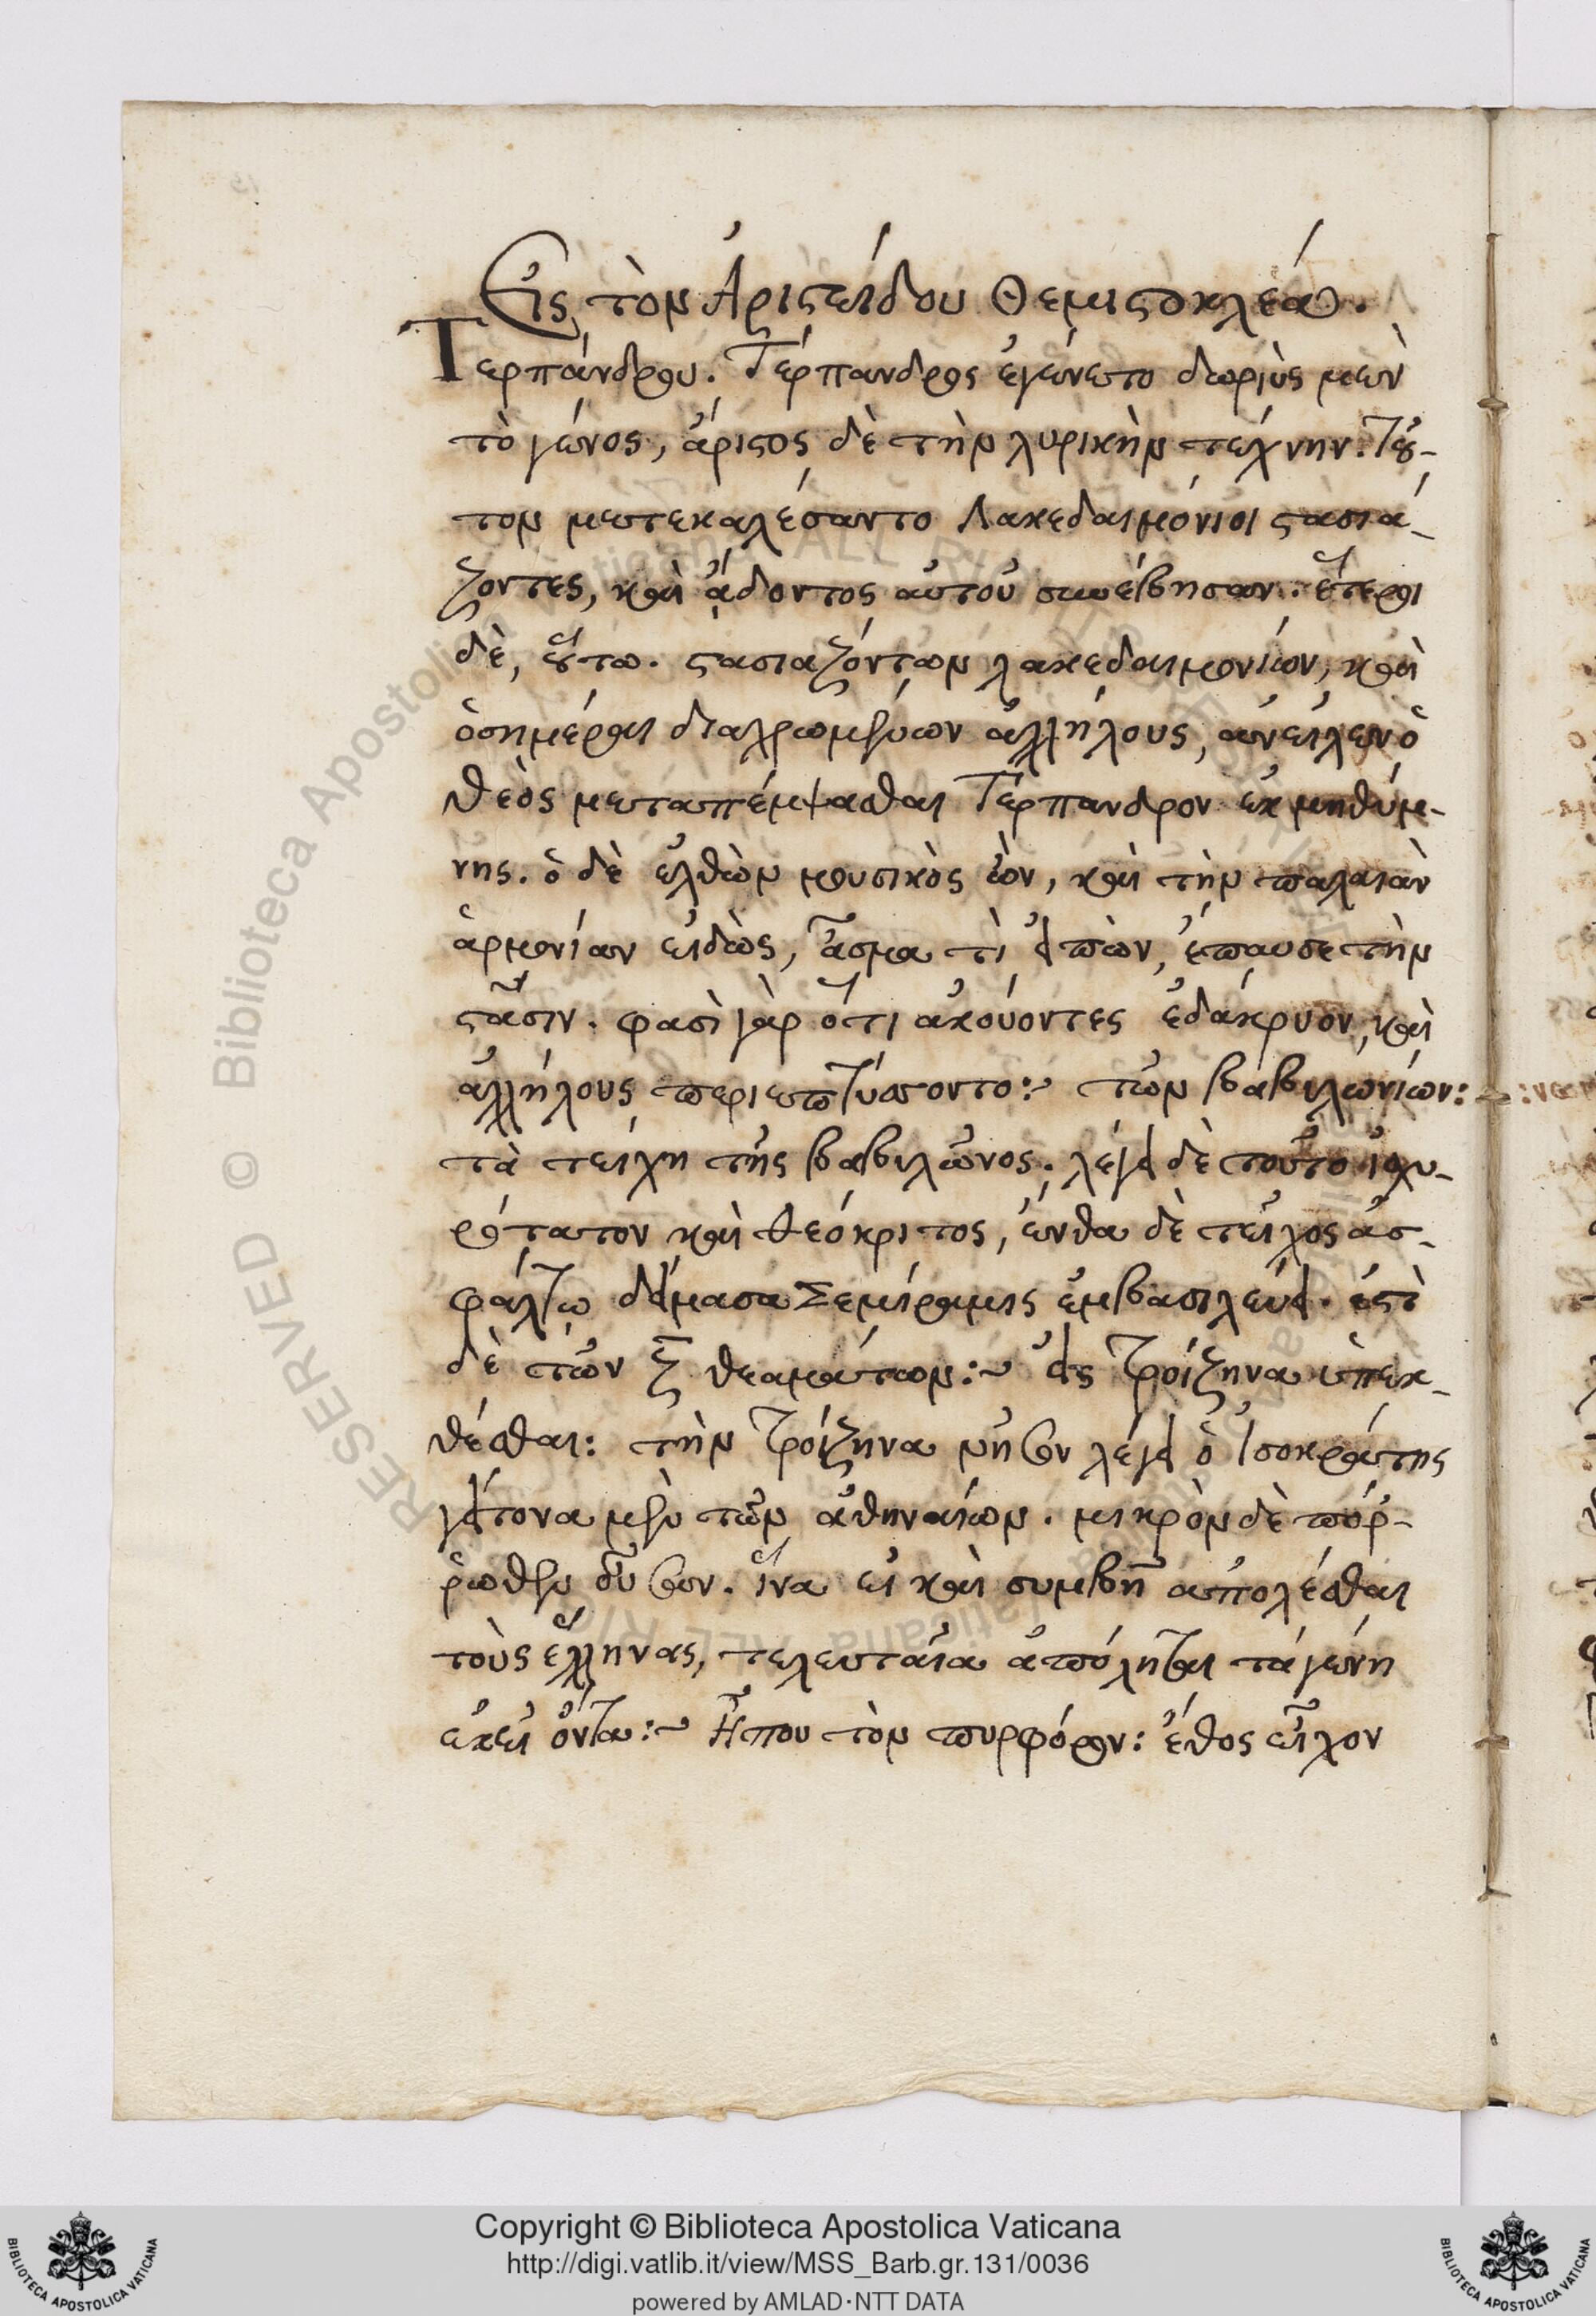 Εἰς τὸν Ἀριστείδου Θεμιστοκλέα.
Τερπάνδρου. Τέρπανδρος ἐγένετο δωριὺς μὲν
τὸ γένος, ἄριστος δὲ τὴν λυρικὴν τέχνην. τοῦ-
τον μετεκαλέσαντο Λακεδαιμόνιοι στασιά-
ζοντες, καὶ ᾄδοντος αὐτοῦ συνέβησαν. ἕτεροι
δὲ, οὕτω. στασιαζόντων λακεδαιμονίων, καὶ
ὁσημέραι διαχρωμένων ἀλλήλους, ἀνεῖλεν ὁ
θεὸς μεταπέμψασθαι Τέρπανδρον ἐκ μηθύμ-
νης. ὁ δὲ ἐλθὼν μουσικὸς ὢν, καὶ τὴν παλαιὰν
ἁρμονίαν εἰδὼς, ᾆσμα τὶ εἰπὼν, ἔπαυσε τὴν
στάσιν. φασὶ γὰρ ὅτι ἀκούοντες ἐδάκρυον, καὶ
ἀλλήλους περιεπτύσσοντο:~ τῶν βαβυλωνίων:
τὰ τείχη τῆς βαβυλῶνος. λέγει δὲ τοῦτο ἰσχυ-
ρότατον καὶ θεόκριτος, ἔνθα δὲ τεῖχος ἀσ-
φάλτῳ δείμασα Σεμίραμις ἐμβασιλεύει. ἐστὶ
δὲ τῶν ζ θεαμάτων:~ εἰς Τροίζηνα ὑπεκ-
θέσθαι: τὴν Τροίζηνα νῆσον λέγει ὁ Ἰσοκράτης
γείτονα μὲν τῶν ἀθηναίων. μικρὸν δὲ πόρ-
ῥωθεν οὖσαν. ἵνα εἰ καὶ συμβῇ ἀπολέσθαι
τοὺς ἕλληνας, τελευταῖα ἀπόληται τὰ γένη
ἐκεῖ ὄντα:~ Ἦπου τὸν πυρφόρον: ἔθος εἶχον
RESERVED © Biblioteca Apostolica Vaticana ALL RIGHTS
Copyright © Biblioteca Apostolica Vaticana
http://digi.vatlib.it/view/MSS_Barb.gr.131/0036
powered by AMLAD·NTT DATA
BIBLIOTECA APOSTOLICA VATICANA
BIBLIOTECA APOSTOLICA VATICANA